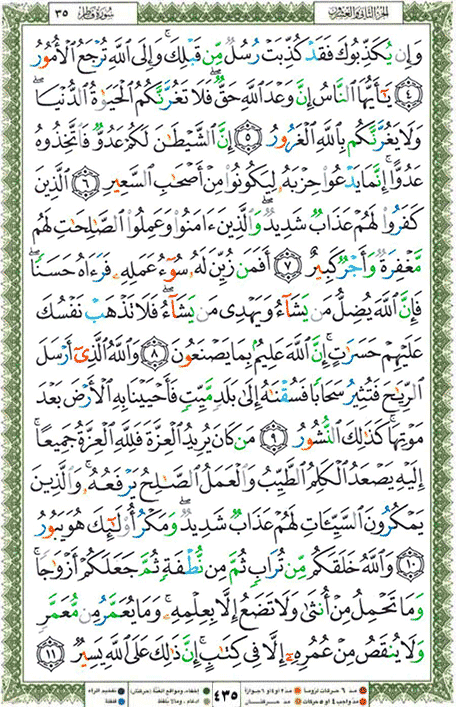 الجزء الثاني والعشرون
سورة فاطر ٣٥
وَإِن يُكَذِّبُوكَ فَقَدْ كُذِّبَتْ رُسُلٌ مِّن قَبْلِكَ ۚ وَإِلَى ٱللَّهِ تُرْجَعُ ٱلْأُمُورُ
﴿٤﴾ يَٰٓأَيُّهَا ٱلنَّاسُ إِنَّ وَعْدَ ٱللَّهِ حَقٌّ ۖ فَلَا تَغُرَّنَّكُمُ ٱلْحَيَوٰةُ ٱلدُّنْيَا ۖ
وَلَا يَغُرَّنَّكُم بِٱللَّهِ ٱلْغَرُورُ ﴿٥﴾ إِنَّ ٱلشَّيْطَٰنَ لَكُمْ عَدُوٌّ فَٱتَّخِذُوهُ
عَدُوًّا ۚ إِنَّمَا يَدْعُوا۟ حِزْبَهُۥ لِيَكُونُوا۟ مِنْ أَصْحَٰبِ ٱلسَّعِيرِ ﴿٦﴾ ٱلَّذِينَ
كَفَرُوا۟ لَهُمْ عَذَابٌ شَدِيدٌ ۖ وَٱلَّذِينَ ءَامَنُوا۟ وَعَمِلُوا۟ ٱلصَّٰلِحَٰتِ لَهُم
مَّغْفِرَةٌ وَأَجْرٌ كَبِيرٌ ﴿٧﴾ أَفَمَن زُيِّنَ لَهُۥ سُوٓءُ عَمَلِهِۦ فَرَءَاهُ حَسَنًا ۖ
فَإِنَّ ٱللَّهَ يُضِلُّ مَن يَشَآءُ وَيَهْدِى مَن يَشَآءُ ۖ فَلَا تَذْهَبْ نَفْسُكَ
عَلَيْهِمْ حَسَرَٰتٍ ۚ إِنَّ ٱللَّهَ عَلِيمٌۢ بِمَا يَصْنَعُونَ ﴿٨﴾ وَٱللَّهُ ٱلَّذِىٓ أَرْسَلَ
ٱلرِّيَٰحَ فَتُثِيرُ سَحَابًا فَسُقْنَٰهُ إِلَىٰ بَلَدٍ مَّيِّتٍ فَأَحْيَيْنَا بِهِ ٱلْأَرْضَ بَعْدَ
مَوْتِهَا ۚ كَذَٰلِكَ ٱلنُّشُورُ ﴿٩﴾ مَن كَانَ يُرِيدُ ٱلْعِزَّةَ فَلِلَّهِ ٱلْعِزَّةُ جَمِيعًا ۚ
إِلَيْهِ يَصْعَدُ ٱلْكَلِمُ ٱلطَّيِّبُ وَٱلْعَمَلُ ٱلصَّٰلِحُ يَرْفَعُهُۥ ۚ وَٱلَّذِينَ
يَمْكُرُونَ ٱلسَّيِّـَٔاتِ لَهُمْ عَذَابٌ شَدِيدٌ ۖ وَمَكْرُ أُو۟لَٰٓئِكَ هُوَ يَبُورُ
﴿١٠﴾ وَٱللَّهُ خَلَقَكُم مِّن تُرَابٍ ثُمَّ مِن نُّطْفَةٍ ثُمَّ جَعَلَكُمْ أَزْوَٰجًا ۚ
وَمَا تَحْمِلُ مِنْ أُنثَىٰ وَلَا تَضَعُ إِلَّا بِعِلْمِهِۦ ۚ وَمَا يُعَمَّرُ مِن مُّعَمَّرٍ
وَلَا يُنقَصُ مِنْ عُمُرِهِۦٓ إِلَّا فِى كِتَٰبٍ ۚ إِنَّ ذَٰلِكَ عَلَى ٱللَّهِ يَسِيرٌ ﴿١١﴾
مد ٦ حركات لزوماً مد ٢ أو ٤ أو ٦ جوازاً
مد واجب ٤ أو ٥ حركات مد حركتان
٤٣٥
إخفاء، ومواقع الغنة (حركتان) تفخيم الراء
ادغام، وما لا يلفظ قلقلة